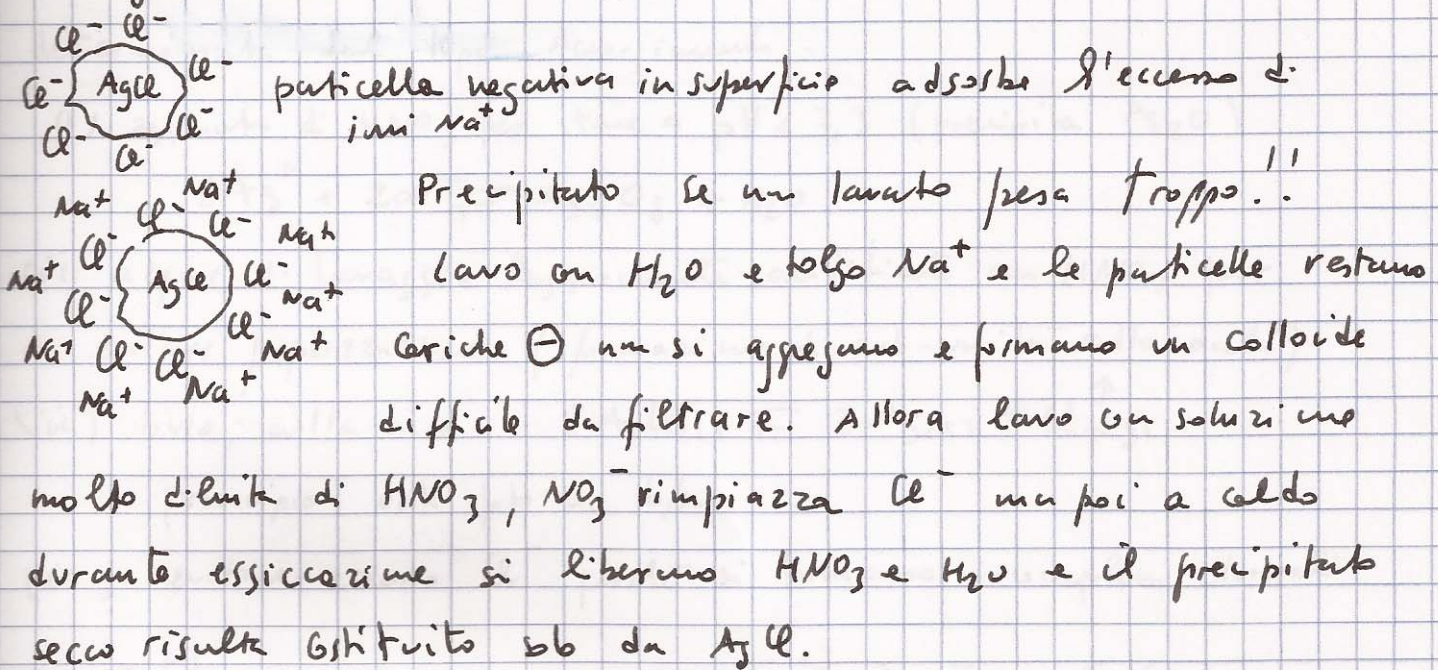 Cl⁻ Cl⁻
Cl⁻ AgCl Cl⁻ particella negativa in superficie adsorbe l'eccesso di
Cl⁻ Cl⁻ Cl⁻ ioni Na⁺
Na⁺ Na⁺ Precipitato se non lavato pesa troppo!!
Cl⁻ Cl⁻ Cl⁻ Na⁺
Na⁺ AgCl Cl⁻ Na⁺ Lavo con H₂O e tolgo Na⁺ e le particelle restano
Cl⁻ Cl⁻
Na⁺ Cl⁻ Cl⁻ Na⁺ Cariche ⊖ non si aggregano e formano un colloide
Na⁺ Na⁺
difficile da filtrare. Allora lavo con soluzione
molto diluita di HNO₃, NO₃⁻ rimpiazza Cl⁻ ma poi a caldo
durante essiccazione si liberano HNO₃ e H₂O e il precipitato
secco risulta costituito solo da AgCl.